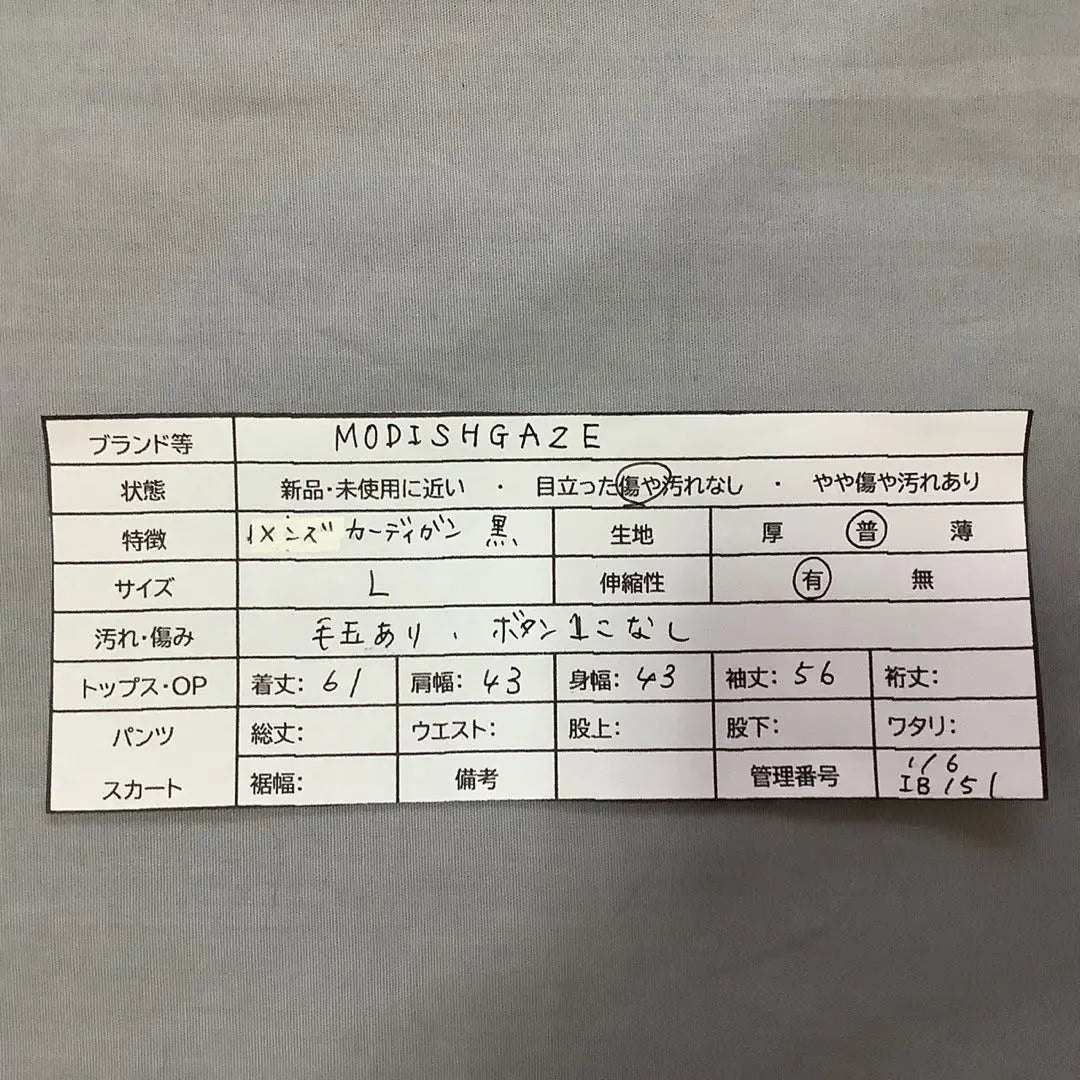 ブランド等 MODISHGAZE
状態 新品・未使用に近い ・ 目立った傷や汚れなし ・ やや傷や汚れあり
特徴 メンズ カーディガン 黒 生地 厚 普 薄
サイズ L 伸縮性 有 無
汚れ・傷み 毛玉あり、ボタン1こなし
トップス・OP 着丈: 61 肩幅: 43 身幅: 43 袖丈: 56 裄丈:
パンツ 総丈: ウエスト: 股上: 股下: ワタリ:
スカート 裾幅: 備考 管理番号 1/6
IB 151